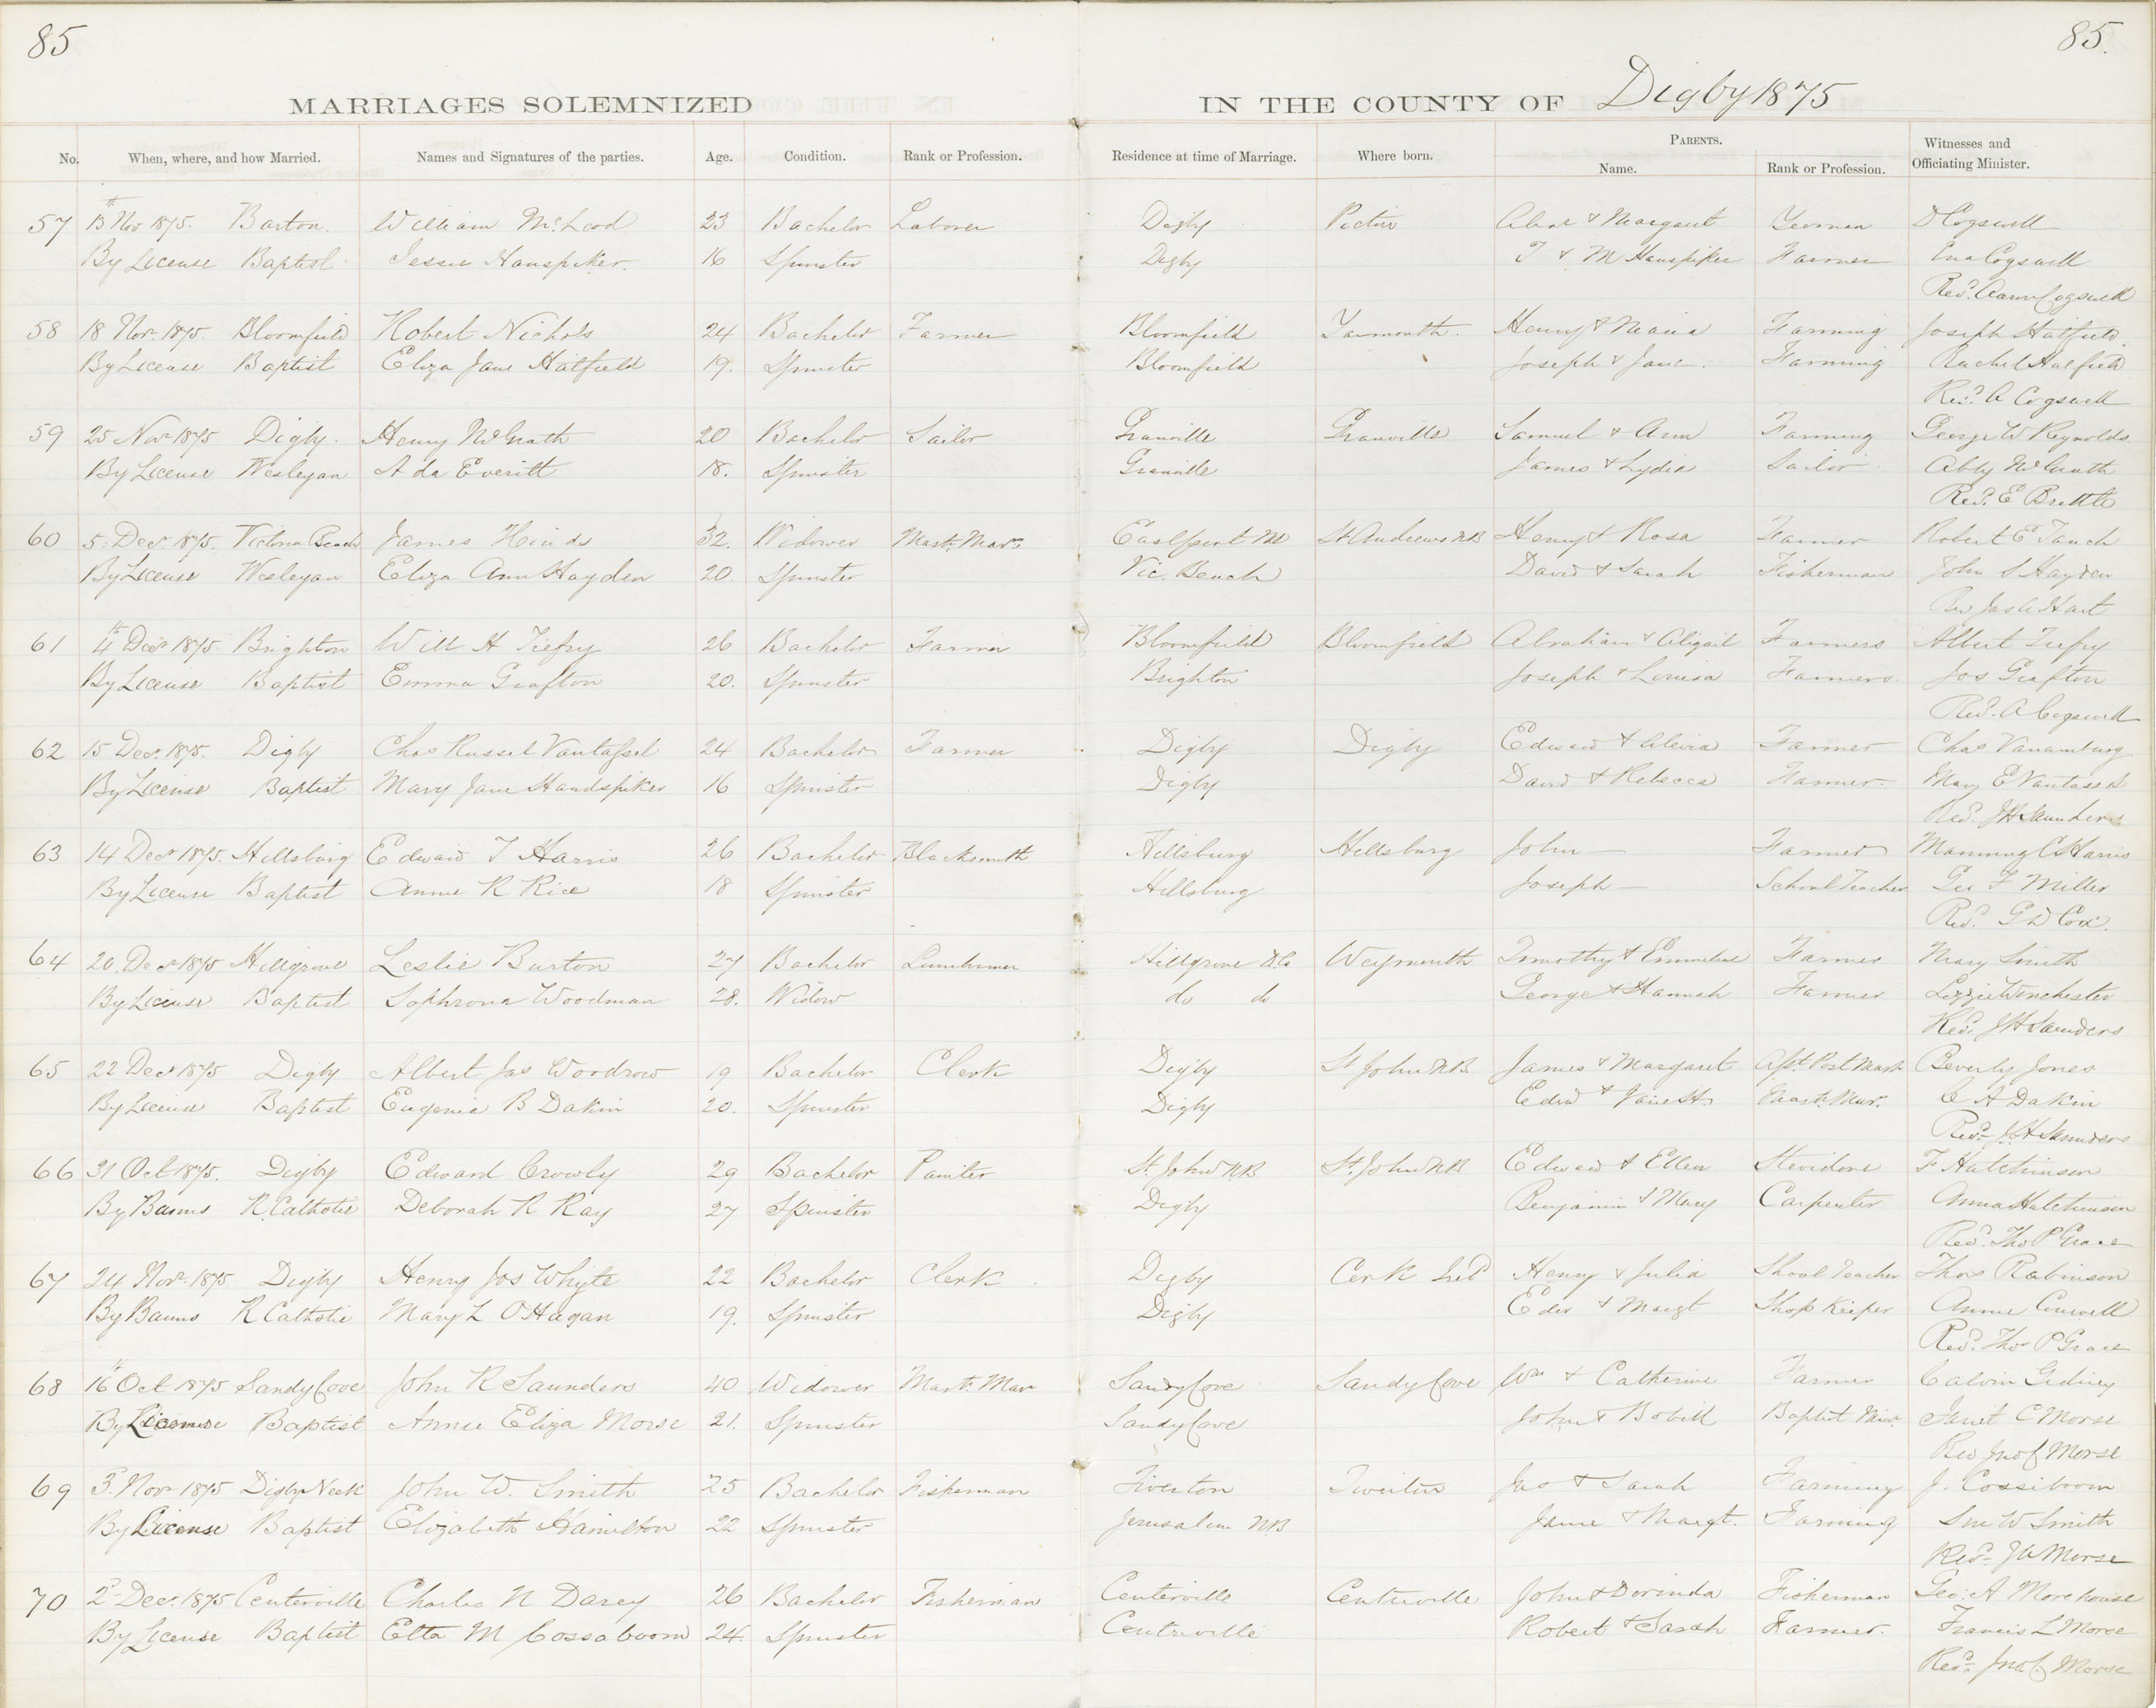 85
85.
MARRIAGES SOLEMNIZED IN THE COUNTY OF Digby 1875
No. When, where, and how Married. Names and Signatures of the parties. Age. Condition. Rank or Profession. Residence at time of Marriage. Where born. PARENTS. Name. Rank or Profession. Witnesses and Officiating Minister.
57 13th Nov 1875. Barton. William McLeod 23 Bachelor Laborer Digby Pictou & Margaret Yeoman D Cogswell
By License Baptist Jessie Hanspiker. 16 Spinster Digby T & M Hanspiker Farmer Cogswell
Revd. Aaron Cogswell
58 18 Nov. 1875. Bloomfield Robert Nichols 24 Bachelor Farmer Bloomfield Yarmouth. Henry & Maria Farming Joseph Hatfield.
By License Baptist Eliza Jane Hatfield 19. Spinster Bloomfield Joseph & Jane. Farming Rachel Hatfield
Revd. A Cogswell
59 25 Nov 1875 Digby. Henry McGrath 20 Bachelor Sailor Granville Granville Samuel & Ann Farming George W Reynolds
By License Wesleyan Ada Everitt 18. Spinster Granville James & Lydia Sailor Abby McGrath
Revd. E Brettle
60 5. Decr. 1875. Victoria Beach James Hinds 32. Widower Mastr. Marr. Eastport Me St Andrews N.B Henry & Rosa Farmer Robert E
By License Wesleyan Eliza Ann Hayden 20. Spinster Vic. Beach David & Sarah Fisherman John S Hayden
Rev Jas A Hart
61 4th Decr 1875 Brighton Will H Trefry 26 Bachelor Farmer Bloomfield Bloomfield Abraham & Abigail Farmers Albert Trefry
By License Baptist Emma Grafton 20. Spinster Brighton Joseph & Louisa Farmers. Jos Grafton
Revd. A Cogswell
62 15 Decr. 1875. Digby Chas Russel Vantassel 24 Bachelor Farmer Digby Digby Edward & Farmer Chas Vanamburg
By License Baptist Mary Jane Handspiker 16 Spinster Digby David & Rebecca Farmer. Mary E Vantassel
Revd. JH Saunders
63 14 Decr 1875. Hillsburg Edward T Harris 26 Bachelor Blacksmith Hillsburg Hillsburg John — Farmer Manning C Harris
By License Baptist Annie R Rice 18 Spinster Hillsburg Joseph — School Teacher Geo F Miller
Revd. G D Cox.
64 20. Decr 1875 Hillgrove Leslie Burton 27 Bachelor Hillgrove D.Co Weymouth Timothy & Farmer Mary Smith
By License Baptist Sophrona Woodman 28. Widow do do George & Hannah Farmer Lizzie Winchester
Revd. JH Saunders
65 22 Decr 1875 Digby Albert Jas Woodrow 19 Bachelor Clerk Digby St John N.B. James & Margaret Asst. Post Mastr Beverly Jones
By License Baptist Eugenia B Dakin 20. Spinster Digby Edwd & Jane H. Mastr. Mar. C A Dakin
Revd. J.H Saunders
66 31 Oct 1875. Digby Edward Crowly 29 Bachelor Painter St John N.B St. John N.B Edward & Ellen Stevidore F Hutchinson
By Banns R. Catholic Deborah R Ray 27 Spinster Digby Benjamin & Mary Carpenter Anna Hutchinson
Revd. Tho P Grace
67 24 Novr. 1875. Digby Henry Jos Whyte 22 Bachelor Clerk Digby Cork Ireld Henry & Julia Shool Teacher Thos Robinson
By Banns R Catholic Mary L OHagan 19. Spinster Digby & Margt Shop Keeper Annie
Revd. Tho P Grace
68 16th Oct 1875 Sandy Cove John R Saunders 40 Widower Mastr. Mar Sandy Cove Sandy Cove Wm & Catherine Farmer Calvin Gidney
By License Baptist Annie Eliza Morse 21. Spinster Sandy Cove John & Baptist Minr. Janet C Morse
Rev Jno C Morse
69 3d. Nov 1875 Digby Neck John W. Smith 25 Bachelor Fisherman Tiverton Tiverton Jas & Sarah Farming J. Cossiboom
By License Baptist Elizabeth Hamilton 22 Spinster Jerusalem N.B & Margt. Farming W Smith
Revd. J C Morse
70 2d Dec. 1875 Centerville Charles N Darey 26 Bachelor Fisherman Centerville Centreville John & Dorinda Fisherman Geo. A Morehouse
By License Baptist Etta M Cossaboom 24. Spinster Centreville Robert & Sarah Farmer. Francis L Morse
Revd. Jno C. Morse